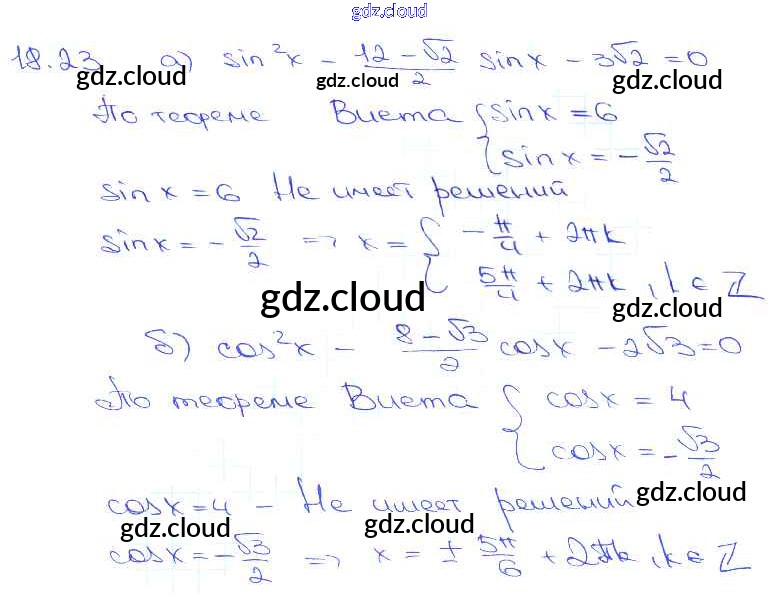 gdz.cloud
18.23 а) sin²x - (12-√2)/2 sinx - 3√2 = 0
gdz.cloud gdz.cloud gdz.cloud
По теореме Виета { sinx = 6
sinx = -√2/2
sinx = 6 Не имеет решений
sinx = -√2/2 => x = { -π/4 + 2πk
5π/4 + 2πk, k ∈ Z
gdz.cloud gdz.cloud
б) cos²x - (8-√3)/2 cosx - 2√3 = 0
По теореме Виета { cosx = 4
cosx = -√3/2
cosx = 4 - Не имеет решений
gdz.cloud
gdz.cloud gdz.cloud
cosx = -√3/2 => x = ± 5π/6 + 2πk, k ∈ Z